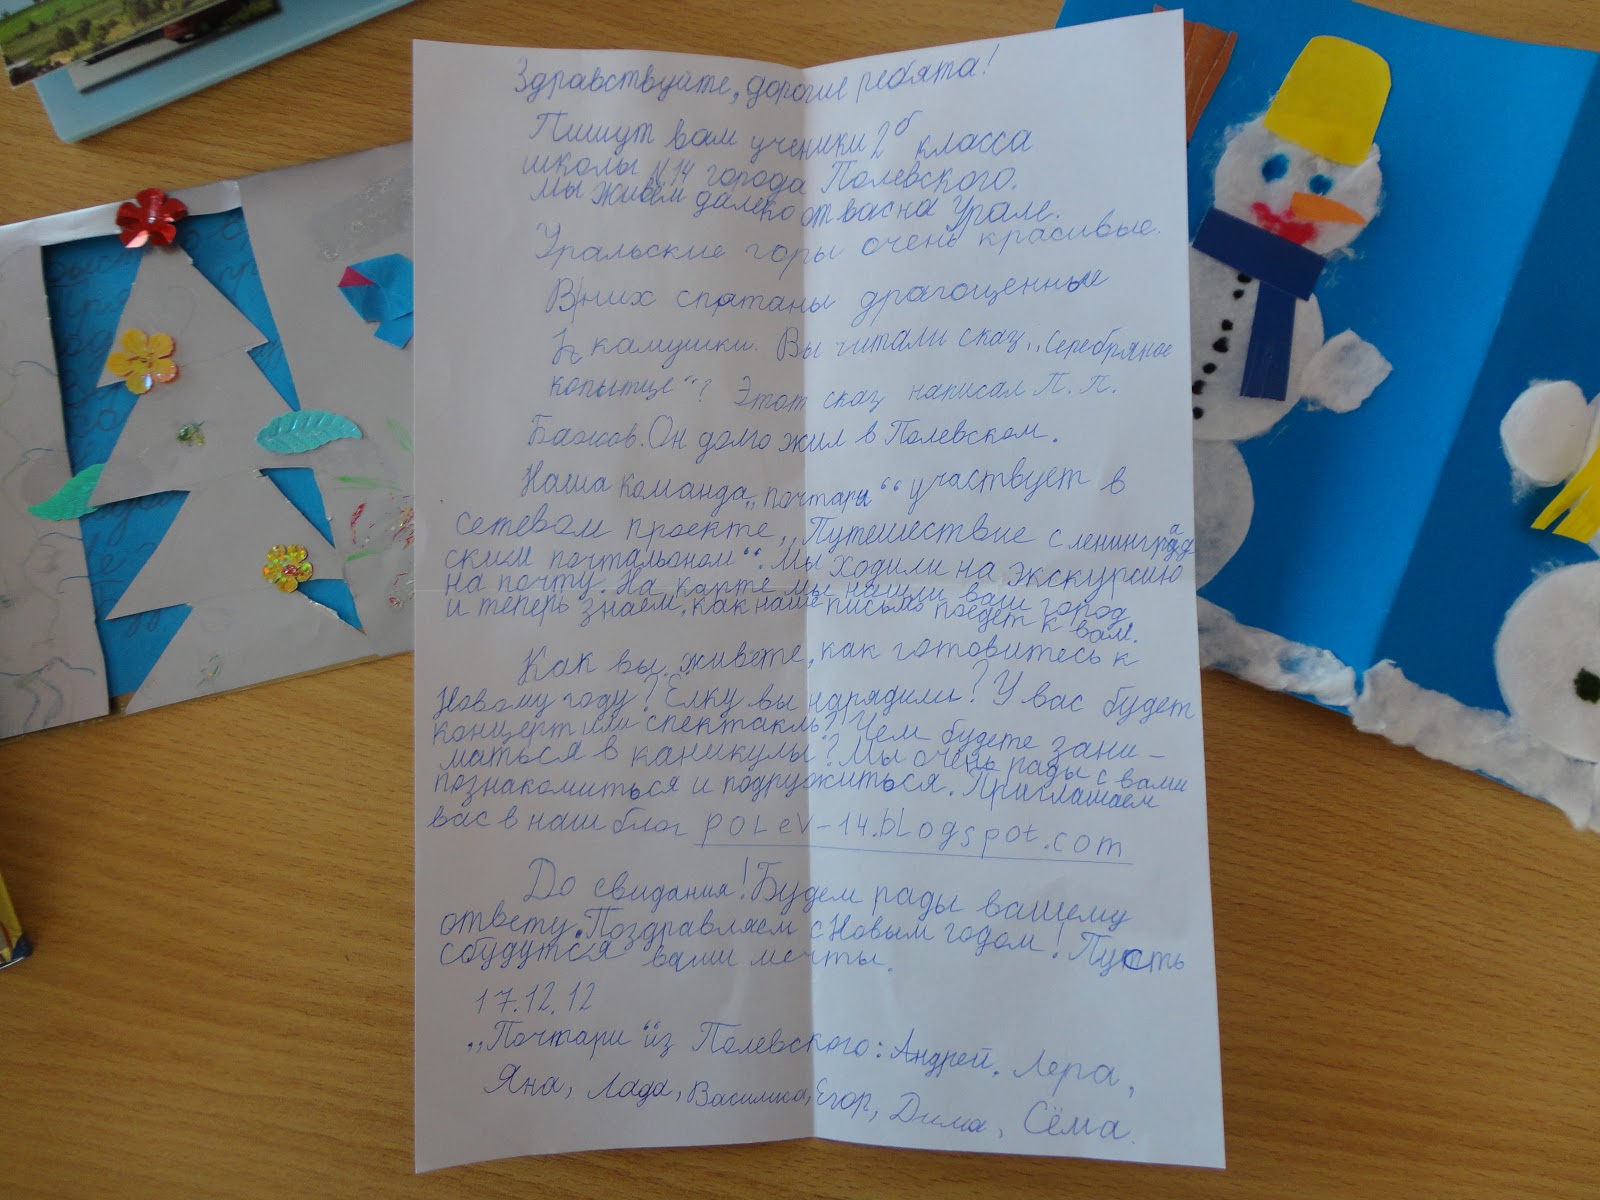 Здравствуйте, дорогие ребята!
Пишут вам ученики 2б класса
школы №14 города Полевского.
Мы живём далеко от вас на Урале.
Уральские горы очень красивые.
В них спрятаны драгоценные
камушки. Вы читали сказ „Серебряное
копытце“? Этот сказ написал П. П.
Бажов. Он долго жил в Полевском.
Наша команда „Почтари“ участвует в
сетевом проекте „Путешествие с ленинград
ским почтальоном“. Мы ходили на экскурсию
на почту. На карте мы нашли ваш город
и теперь знаем, как наше письмо поедет к вам.
Как вы живёте, как готовитесь к
Новому году? Ёлку вы нарядили? У вас будет
концерт или спектакль? Чем будете зани-
маться в каникулы? Мы очень рады с вами
познакомиться и подружиться. Приглашаем
вас в наш блог polev-14.blogspot.com
До свидания! Будем рады вашему
ответу. Поздравляем с Новым годом! Пусть
сбудутся ваши мечты.
17.12.12
„Почтари“ из Полевского: Андрей, Лера,
Яна, Лада, Василиса, Егор, Дима, Сёма.